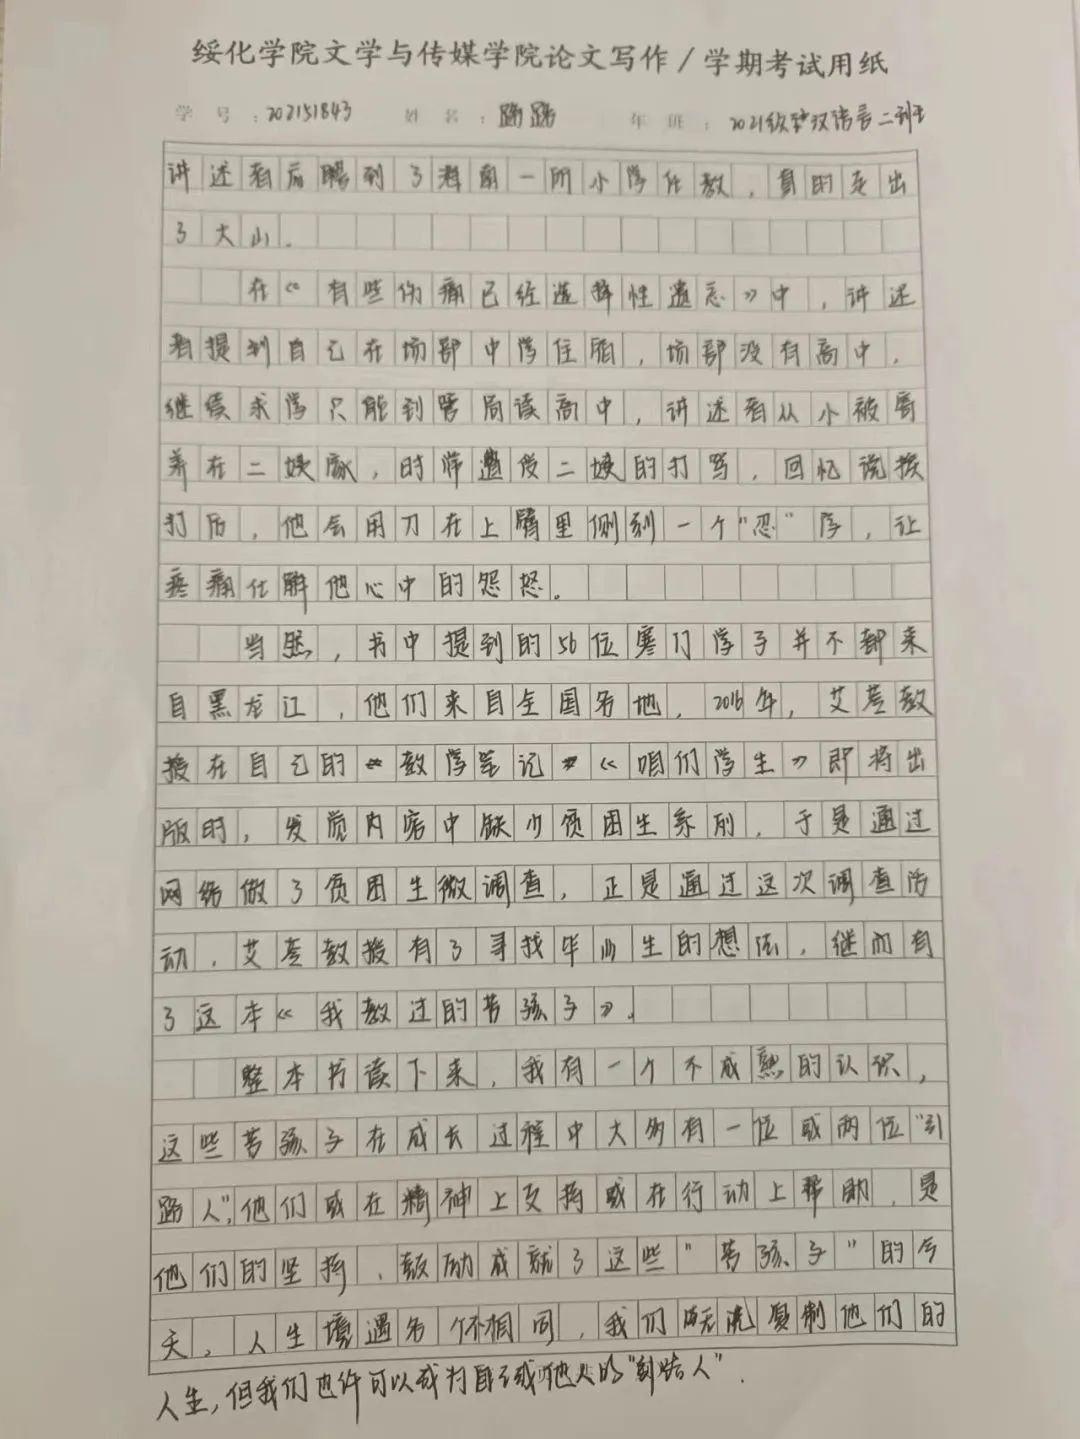 绥化学院文学与传媒学院论文写作/学期考试用纸
学号:202151843 姓名:路路 年班:2021级 汉语言二班
讲述者后聘到了湖南一所小学任教,真的走出
了大山。
在《有些伤痛已经选择性遗忘》中,讲述
者提到自己在场部中学住宿,场部没有高中,
继续求学只能到管局读高中,讲述者从小被寄
养在二姨家,时常遭受二姨的打骂,回忆说挨
打后,他会用刀在上臂里侧刻一个“忍”字,让
疼痛化解他心中的怨怒。
当然,书中提到的56位寒门学子并不都来
自黑龙江,他们来自全国各地,2016年,艾苓教
授在自己的《教学笔记》《咱们学生》即将出
版时,发觉内容中缺少贫困生系列,于是通过
网络做了贫困生微调查,正是通过这次调查活
动,艾苓教授有了寻找毕业生的想法,继而有
了这本《我教过的苦孩子》。
整本书读下来,我有一个不成熟的认识,
这些苦孩子在成长过程中大多有一位或两位“引
路人”,他们或在精神上支持或在行动上帮助,是
他们的坚持、鼓励成就了这些“苦孩子”的今
天,人生境遇各个不相同,我们无法复制他们的
人生,但我们也许可以成为自己或他人的“引路人”.